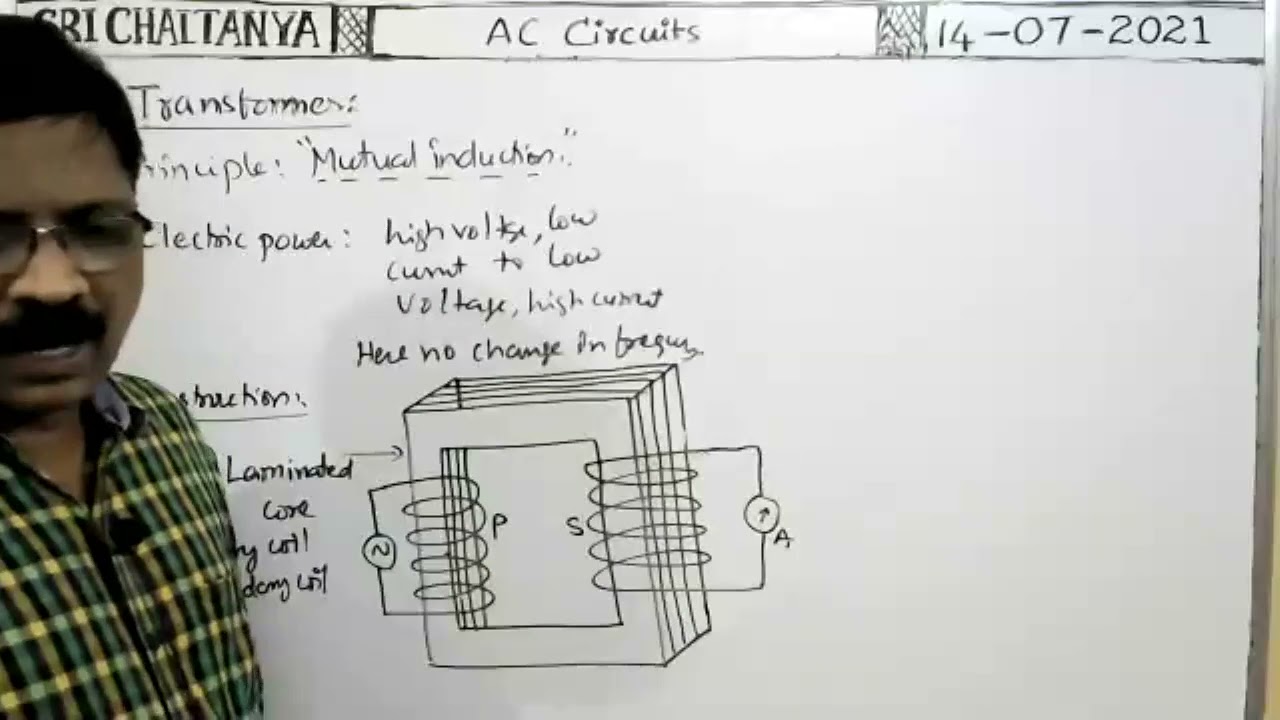 SRI CHAITANYA
AC Circuits
14-07-2021
Transformer:
rinciple: "Mutual induction."
Electric power: high voltge, low
curnt to low
voltage, high current
Here no change in frequ
struction:
Laminated
core
ry coil
dary coil
P
S
A